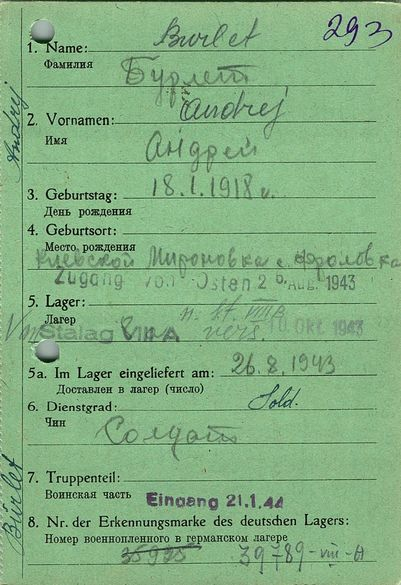 293
Burlet
1. Name:
Фамилия
Бурлет
Andrej
2. Vornamen:
Имя
Андрей
3. Geburtstag: 18.1.1918 г.
День рождения
4. Geburtsort:
Место рождения
Киевской Мироновка с. Фроловка
Zugang von Osten 26. Aug. 1943
5. Lager: n. St. VIII B
Лагерь
Von Stalag VIII A vers. 10. Okt. 1943
5a. Im Lager eingeliefert am: 26.8.1943
Доставлен в лагерь (число)
6. Dienstgrad: Sold.
Чин
Солдат
7. Truppenteil:
Воинская часть
Eingang 21.1.44
8. Nr. der Erkennungsmarke des deutschen Lagers:
Номер военнопленного в германском лагере
35925 39789-VIII-A
Andrej
Burlet